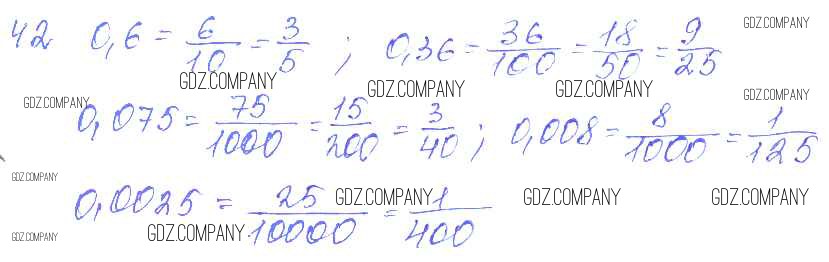 42 0,6 = 6/10 = 3/5 ; 0,36 = 36/100 = 18/50 = 9/25
0,075 = 75/1000 = 15/200 = 3/40 ; 0,008 = 8/1000 = 1/125
0,0025 = 25/10000 = 1/400
GDZ.COMPANY
GDZ.COMPANY GDZ.COMPANY GDZ.COMPANY
GDZ.COMPANY GDZ.COMPANY
GDZ.COMPANY GDZ.COMPANY GDZ.COMPANY GDZ.COMPANY
GDZ.COMPANY GDZ.COMPANY